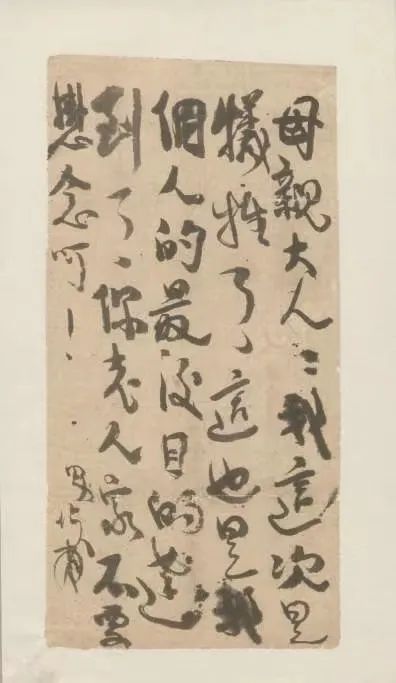 母親大人：我這次是
犧牲了、這也是我
個人的最後目的達
到了、你老人家不要
懸念呵！
男